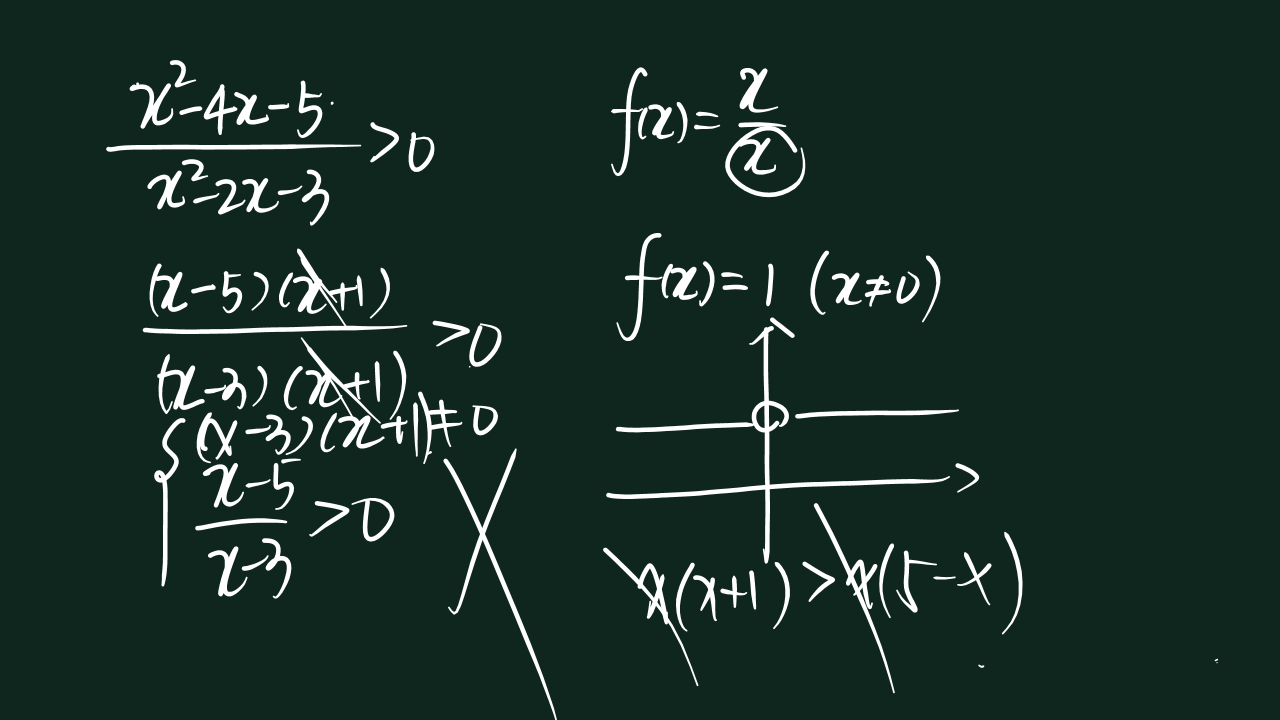 x²-4x-5
x²-2x-3
>0
(x-5)(x+1)
(x-3)(x+1)
>0
(x-3)(x+1)≠0
x-5
x-3
>0
f(x)=x/x
f(x)=1 (x≠0)
x(x+1)>x(5-x)